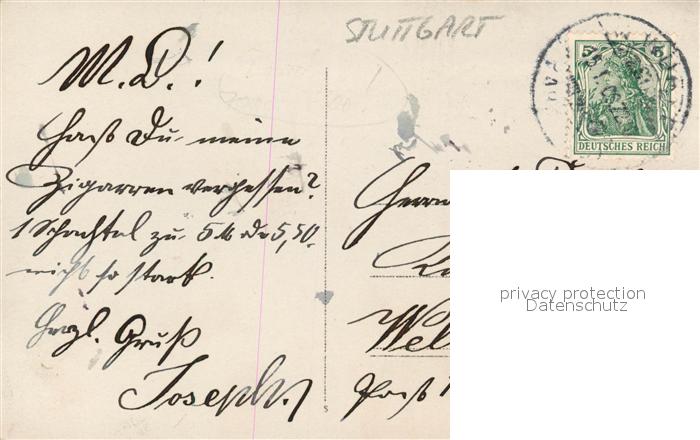 STUTTGART
M. L.!
Hast Du meine
Zigarren vergessen?
1 Schachtel zu 5 M
nicht so stark.
Herzl. Gruß
Joseph.
5 5
DEUTSCHES REICH
Herrn
Wel
Post
privacy protection
Datenschutz